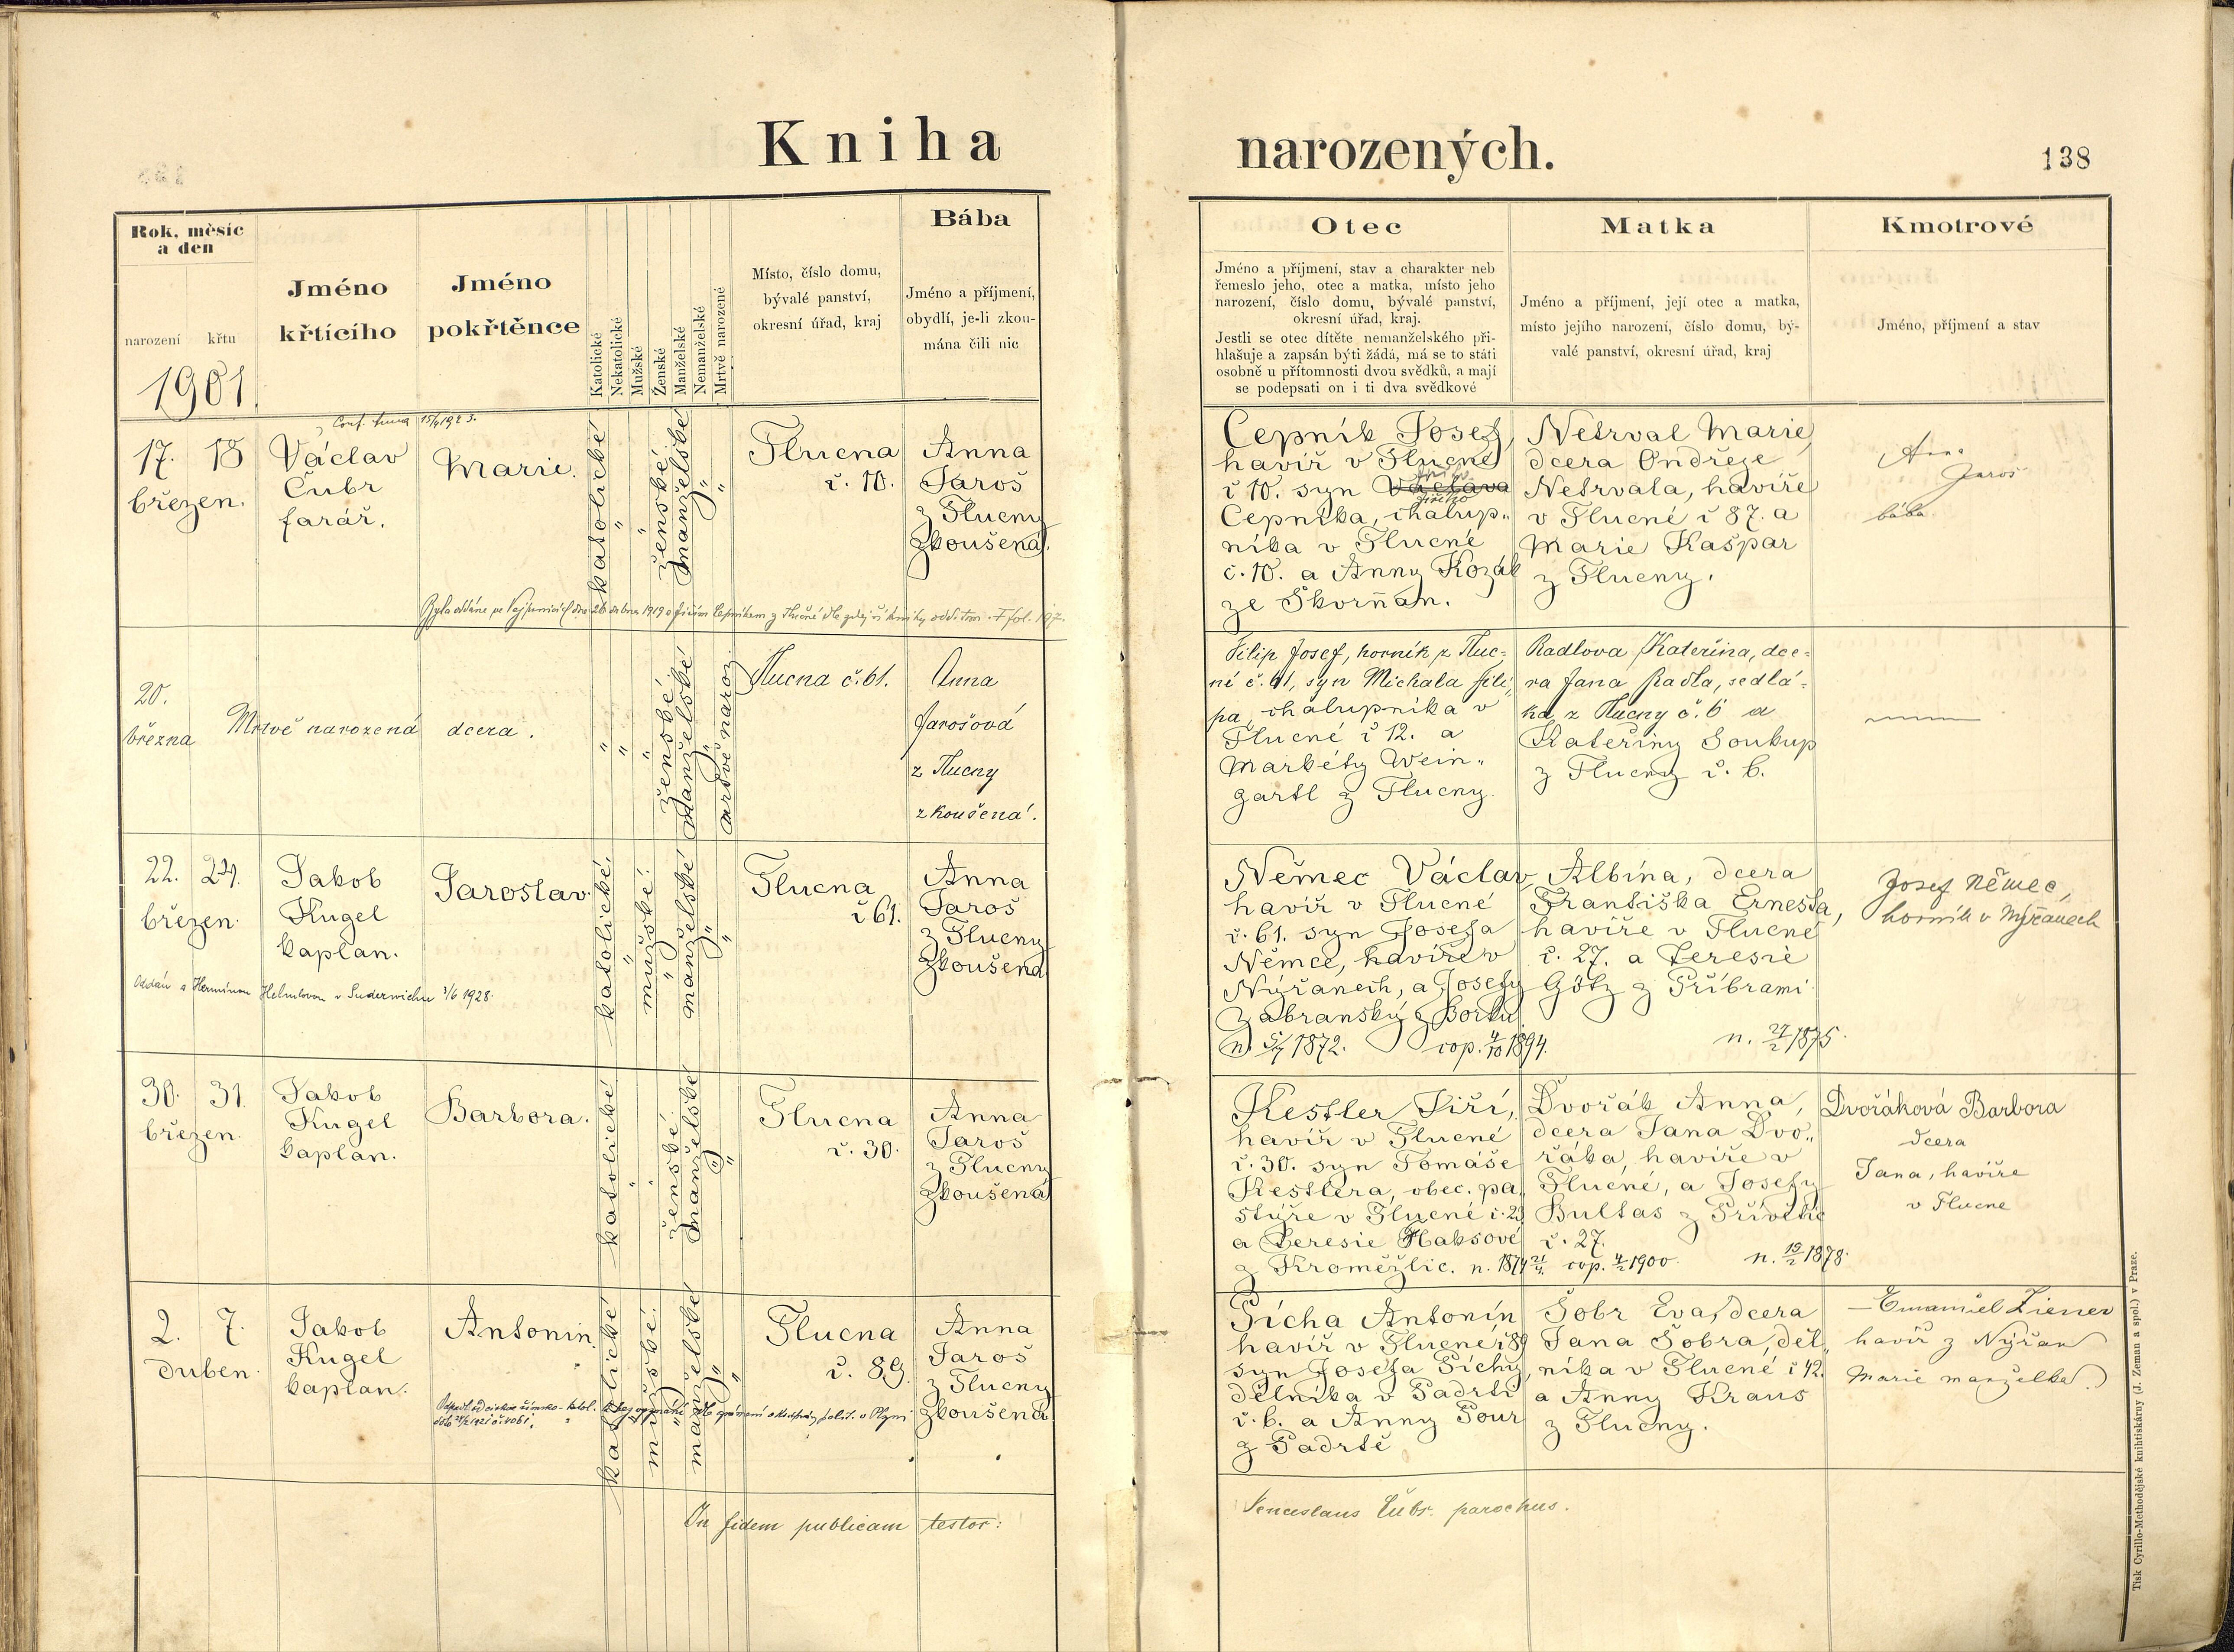 Kniha
narozených.
138
Rok, měsíc
a den
narození křtu
1901.
Jméno
křtícího
Jméno
pokřtěnce
Katolické
Nekatolické
Mužské
Ženské
Manželské
Nemanželské
Mrtvě narozené
Místo, číslo domu,
bývalé panství,
okresní úřad, kraj
Bába
Jméno a příjmení,
obydlí, je-li zkou-
mána čili nic
Otec
Jméno a příjmení, stav a charakter neb
řemeslo jeho, otec a matka, místo jeho
narození, číslo domu, bývalé panství,
okresní úřad, kraj.
Jestli se otec dítěte nemanželského při-
hlašuje a zapsán býti žádá, má se to státi
osobně u přítomnosti dvou svědků, a mají
se podepsati on i ti dva svědkové
Matka
Jméno a příjmení, její otec a matka,
místo jejího narození, číslo domu, bý-
valé panství, okresní úřad, kraj
Kmotrové
Jméno, příjmení a stav
17. 18
březen.
Václav
Čubr
farář.
Marie.
katolické
"
"
ženské.
manželské
"
"
Tlucna
č. 10.
Anna
Jaroš
z Tlucny
zkoušená.
Cepník Josef,
havíř v Tlucné
č 10. syn Václava
Jiřího
Cepníka, chalup„
níka v Tlucné
č. 10. a Anny Kozák
ze Skorňan.
Netrval Marie,
dcera Ondřeje
Netrvala, havíře
v Tlucné č 87. a
Marie Kašpar
z Tlucny.
Anna
Jaroš
bába
20.
března
Mrtvě narozená
dcera.
"
"
"
ženské.
manželské
"
mrtvě naroz.
Tlucna č. 61.
Anna
Jarošová
z Tlucny
zkoušená.
Filip Josef, horník z Tluc-
né č. 61, syn Michala Fili-
pa, chalupníka v
Tlucné č 12. a
Markéty Wein„
gartl z Tlucny.
Radlova Kateřina, dce-
ra Jana Radla, sedlá-
ka z Tlucny č. 6 a
Kateřiny Soukup
z Tlucny č. 6.
22. 24.
březen.
Jakob
Kugel
kaplan.
Jaroslav.
katolické.
"
mužské.
"
manželské
"
"
Tlucna
č 61.
Anna
Jaroš
z Tlucny
zkoušená
Oddán s Hermínou Helmlovou v Suderwichu 3/6 1928.
Němec Václav
havíř v Tlucné
č. 61. syn Josefa
Němce, havíře v
Nýřanech, a Josefy
Zábranský z Borku
n. 5/7 1872. cop. 4/10 1894.
Albína, dcera
Františka Ernesta,
havíře v Tlucné
č. 27. a Teresie
Götz z Příbrami
n. 27/2 1875.
Josef Němec,
horník v Nýřanech
30. 31.
březen.
Jakob
Kugel
kaplan.
Barbora.
katolické
"
"
ženské.
manželské
"
"
Tlucna
č. 30.
Anna
Jaroš
z Tlucny
zkoušená
Kestler Jiří,
havíř v Tlucné
č. 30. syn Tomáše
Kestlera, obec. pa„
stýře v Tlucné č. 29
a Teresie Haksové
z Kroměžlic. n. 1874 21/4. cop. 4/2 1900.
Dvořák Anna,
dcera Jana Dvo„
řáka, havíře v
Tlucné, a Josefy
Bultas z Přívětic
č. 27.
n. 19/2 1878.
Dvořáková Barbora
dcera
Jana, havíře
v Tlucne
2. 7.
duben.
Jakob
Kugel
kaplan.
Antonín.
katolické
"
mužské.
"
manželské
"
"
Tlucna
č. 89.
Anna
Jaroš
z Tlucny
zkoušená
Pícha Antonín
havíř v Tlucné č 89
syn Josefa Píchy,
dělníka v Padrti
č. 6. a Anny Pour
z Padrtě
Šobr Eva, dcera
Jana Šobra, děl„
níka v Tlucné č 42.
a Anny Kraus
z Tlucny.
Emanuel Ziener
havíř z Nýřan
Marie manželka.
In fidem publicam testor:
Venceslaus Čubr. parochus.
Tisk Cyrillo-Methodějské knihtiskárny (J. Zeman a spol.) v Praze.